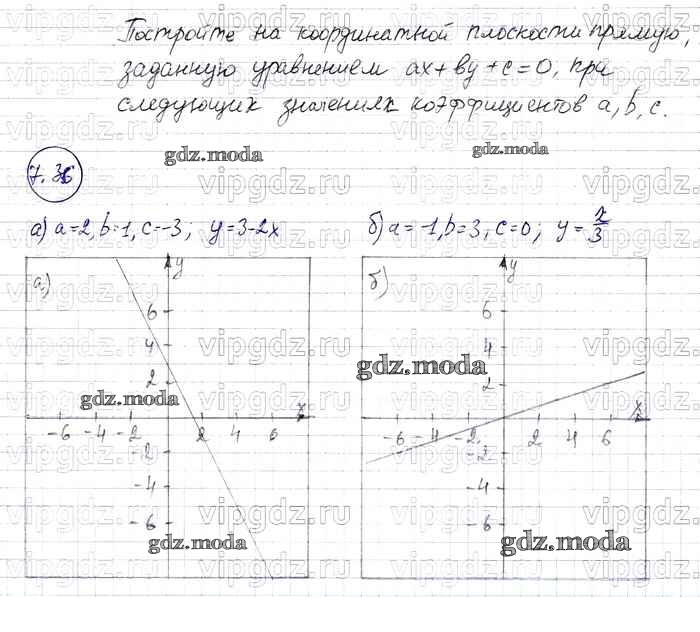 Постройте на координатной плоскости прямую,
заданную уравнением ax+by+c=0, при
следующих значениях коэффициентов a, b, c.
gdz.moda gdz.moda
7.36
а) a=2, b=1, c=-3; y=3-2x
б) a=-1, b=3, c=0; y=x/3
а) y
6
4
2
-6 -4 -2 2 4 6 x
-2
-4
-6
gdz.moda
gdz.moda
б) y
6
4
2
-6 -4 -2 2 4 6 x
-2
-4
-6
gdz.moda
gdz.moda
vipgdz.ru